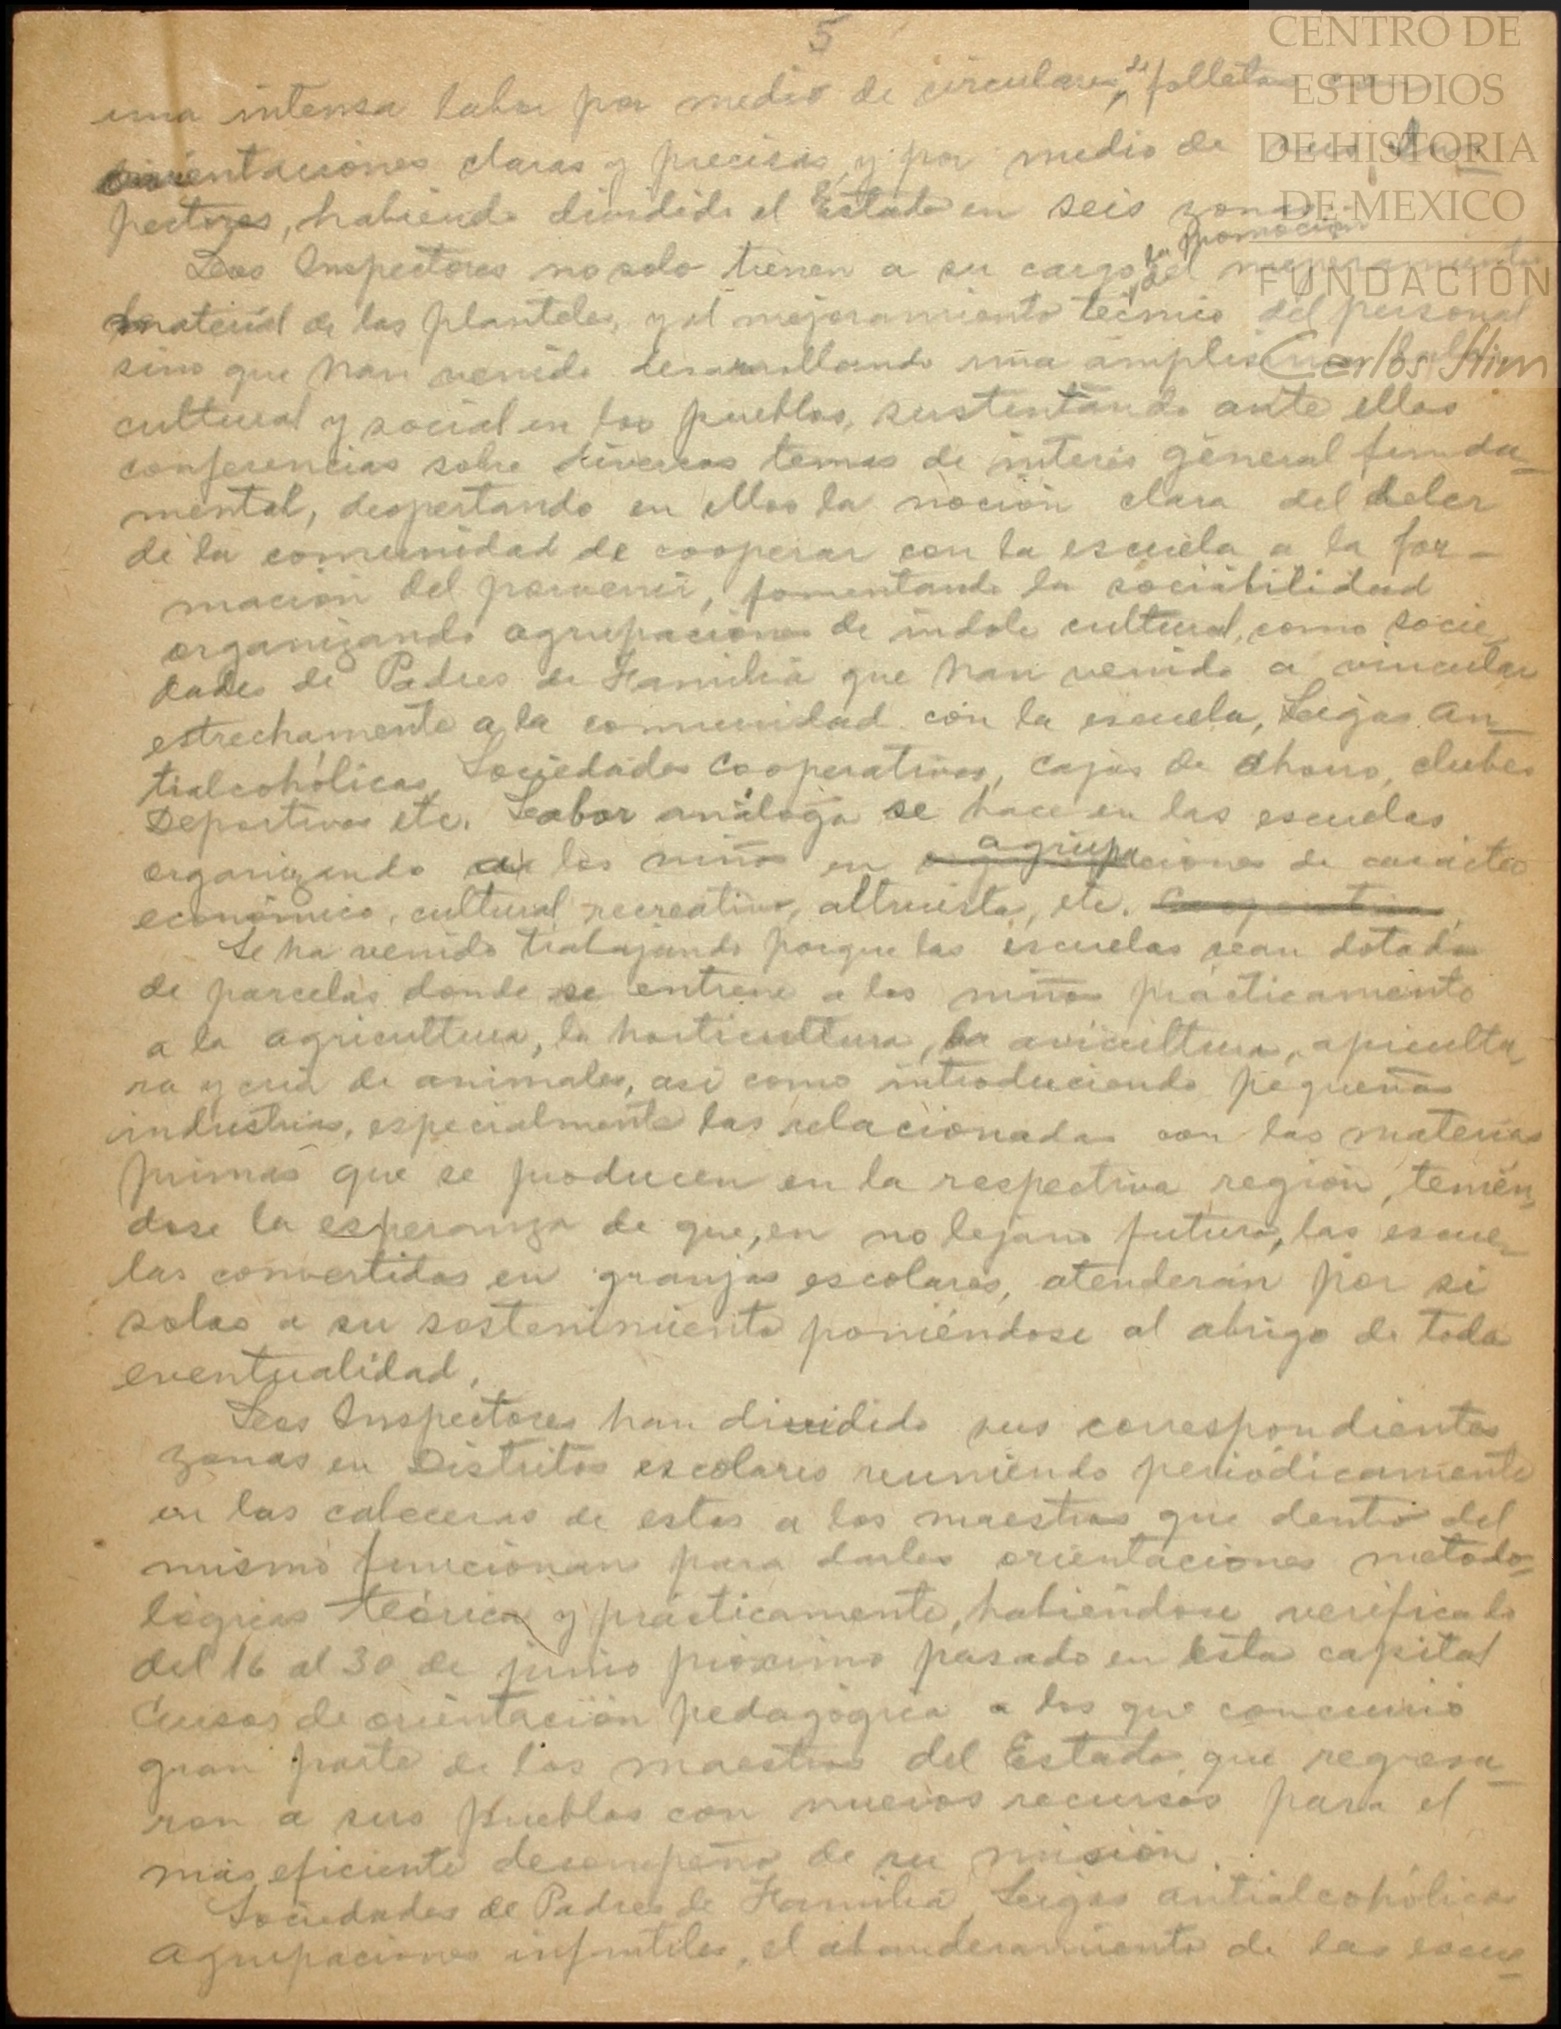 5
una intensa labor por medio de circulares, de folletos con
orientaciones claras y precisas, y por medio de sus Ins
pectores, habiendo dividido el Estado en seis zonas.
Los Inspectores no solo tienen a su cargo la promoción del mejoramiento
material de los planteles, y el mejoramiento técnico del personal
sino que han venido desarrollando una amplísima
cultural y social en los pueblos, sustentando ante ellos
conferencias sobre diversos temas de interés general funda-
mental, despertando en ellos la noción clara del deber
de la comunidad de cooperar con la escuela a la for-
mación del porvenir, fomentando la sociabilidad
organizando agrupaciones de índole cultural, como socie-
dades de Padres de Familia que han venido a vincular
estrechamente a la comunidad con la escuela, Ligas An-
tialcohólicas, Sociedades Cooperativas, cajas de ahorro, clubes
Deportivos etc. Labor análoga se hace en las escuelas
organizando a los niños en agrupaciones de carácter
económico, cultural, recreativo, altruista, etc. cooperativa
Se ha venido trabajando porque las escuelas sean dotadas
de parcelas donde se entrene a los niños prácticamente
a la agricultura, la horticultura, la avicultura, apicultu-
ra y cría de animales, así como introduciendo pequeñas
industrias, especialmente las relacionadas con las materias
primas que se producen en la respectiva región, tenién-
dose la esperanza de que, en no lejano futuro, las escue-
las convertidas en granjas escolares, atenderán por si
solas a su sostenimiento poniéndose al abrigo de toda
eventualidad.
Los Inspectores han dividido sus correspondientes
zonas en Distritos escolares reuniendo periódicamente
en las cabeceras de estos a los maestros que dentro del
mismo funcionan para darles orientaciones metodo-
lógicas teórica y prácticamente, habiéndose verificado
del 16 al 30 de junio próximo pasado en esta capital
Cursos de orientación pedagógica a los que concurrió
gran parte de los maestros del Estado, que regresa-
ron a sus pueblos con nuevos recursos para el
más eficiente desempeño de su misión.
Sociedades de Padres de Familia, Ligas antialcohólicas
Agrupaciones infantiles, el abanderamiento de las escue-
CENTRO DE
ESTUDIOS
DE HISTORIA
DE MEXICO
FUNDACIÓN
Carlos Slim